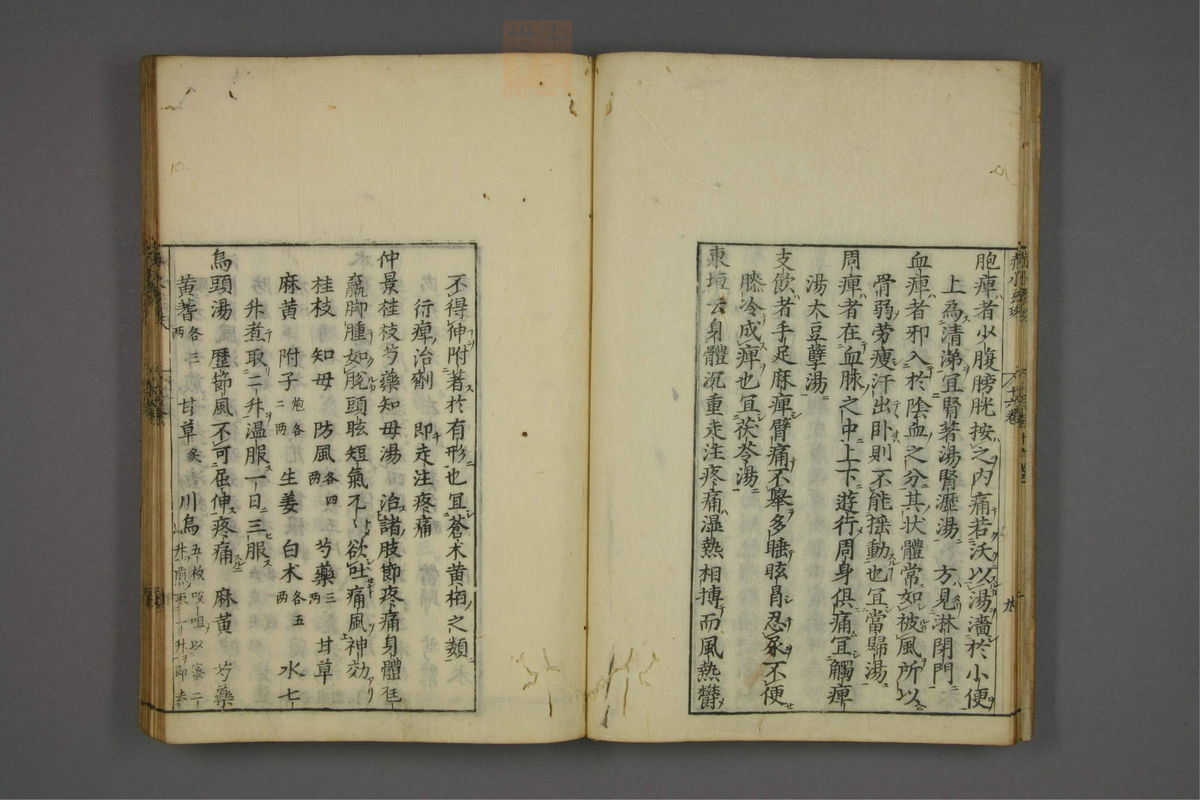 胞痺者少腹膀胱按之内痛若沃以湯濇於小便
上為清涕宜腎著湯腎瀝湯 方見淋閉門
血痺者邪入於陰血之分其状體常如被風所以
骨弱労痩汗出卧則不能揺動也宜當歸湯
周痺者在血脉之中上下遊行周身俱痛宜觸痺
湯大豆蘖湯
支飲者手足麻痺臂痛不舉多睡眩冒忍尿不便
膝冷成痺也宜茯苓湯
東垣云身體沉重走注疼痛温熱相搏而風熱欝
不得伸附著於有形也宜蒼术黄栢之類
行痺治劑 即走注疼痛
仲景桂枝芍藥知母湯 治諸肢節疼痛身體尫
羸脚腫如脱頭眩短氣兀兀欲吐痛風神効
桂枝 知母 防風各四两 芍藥三两 甘草
麻黄 附子炮各二两 生姜 白术各五两 水七
升煮取二升温服一日三服
烏頭湯 歴節風不可屈伸疼痛 麻黄 芍藥
黄耆各三两 甘草炙 川烏五枚㕮咀以蜜二升煎取一升即去
十六卷